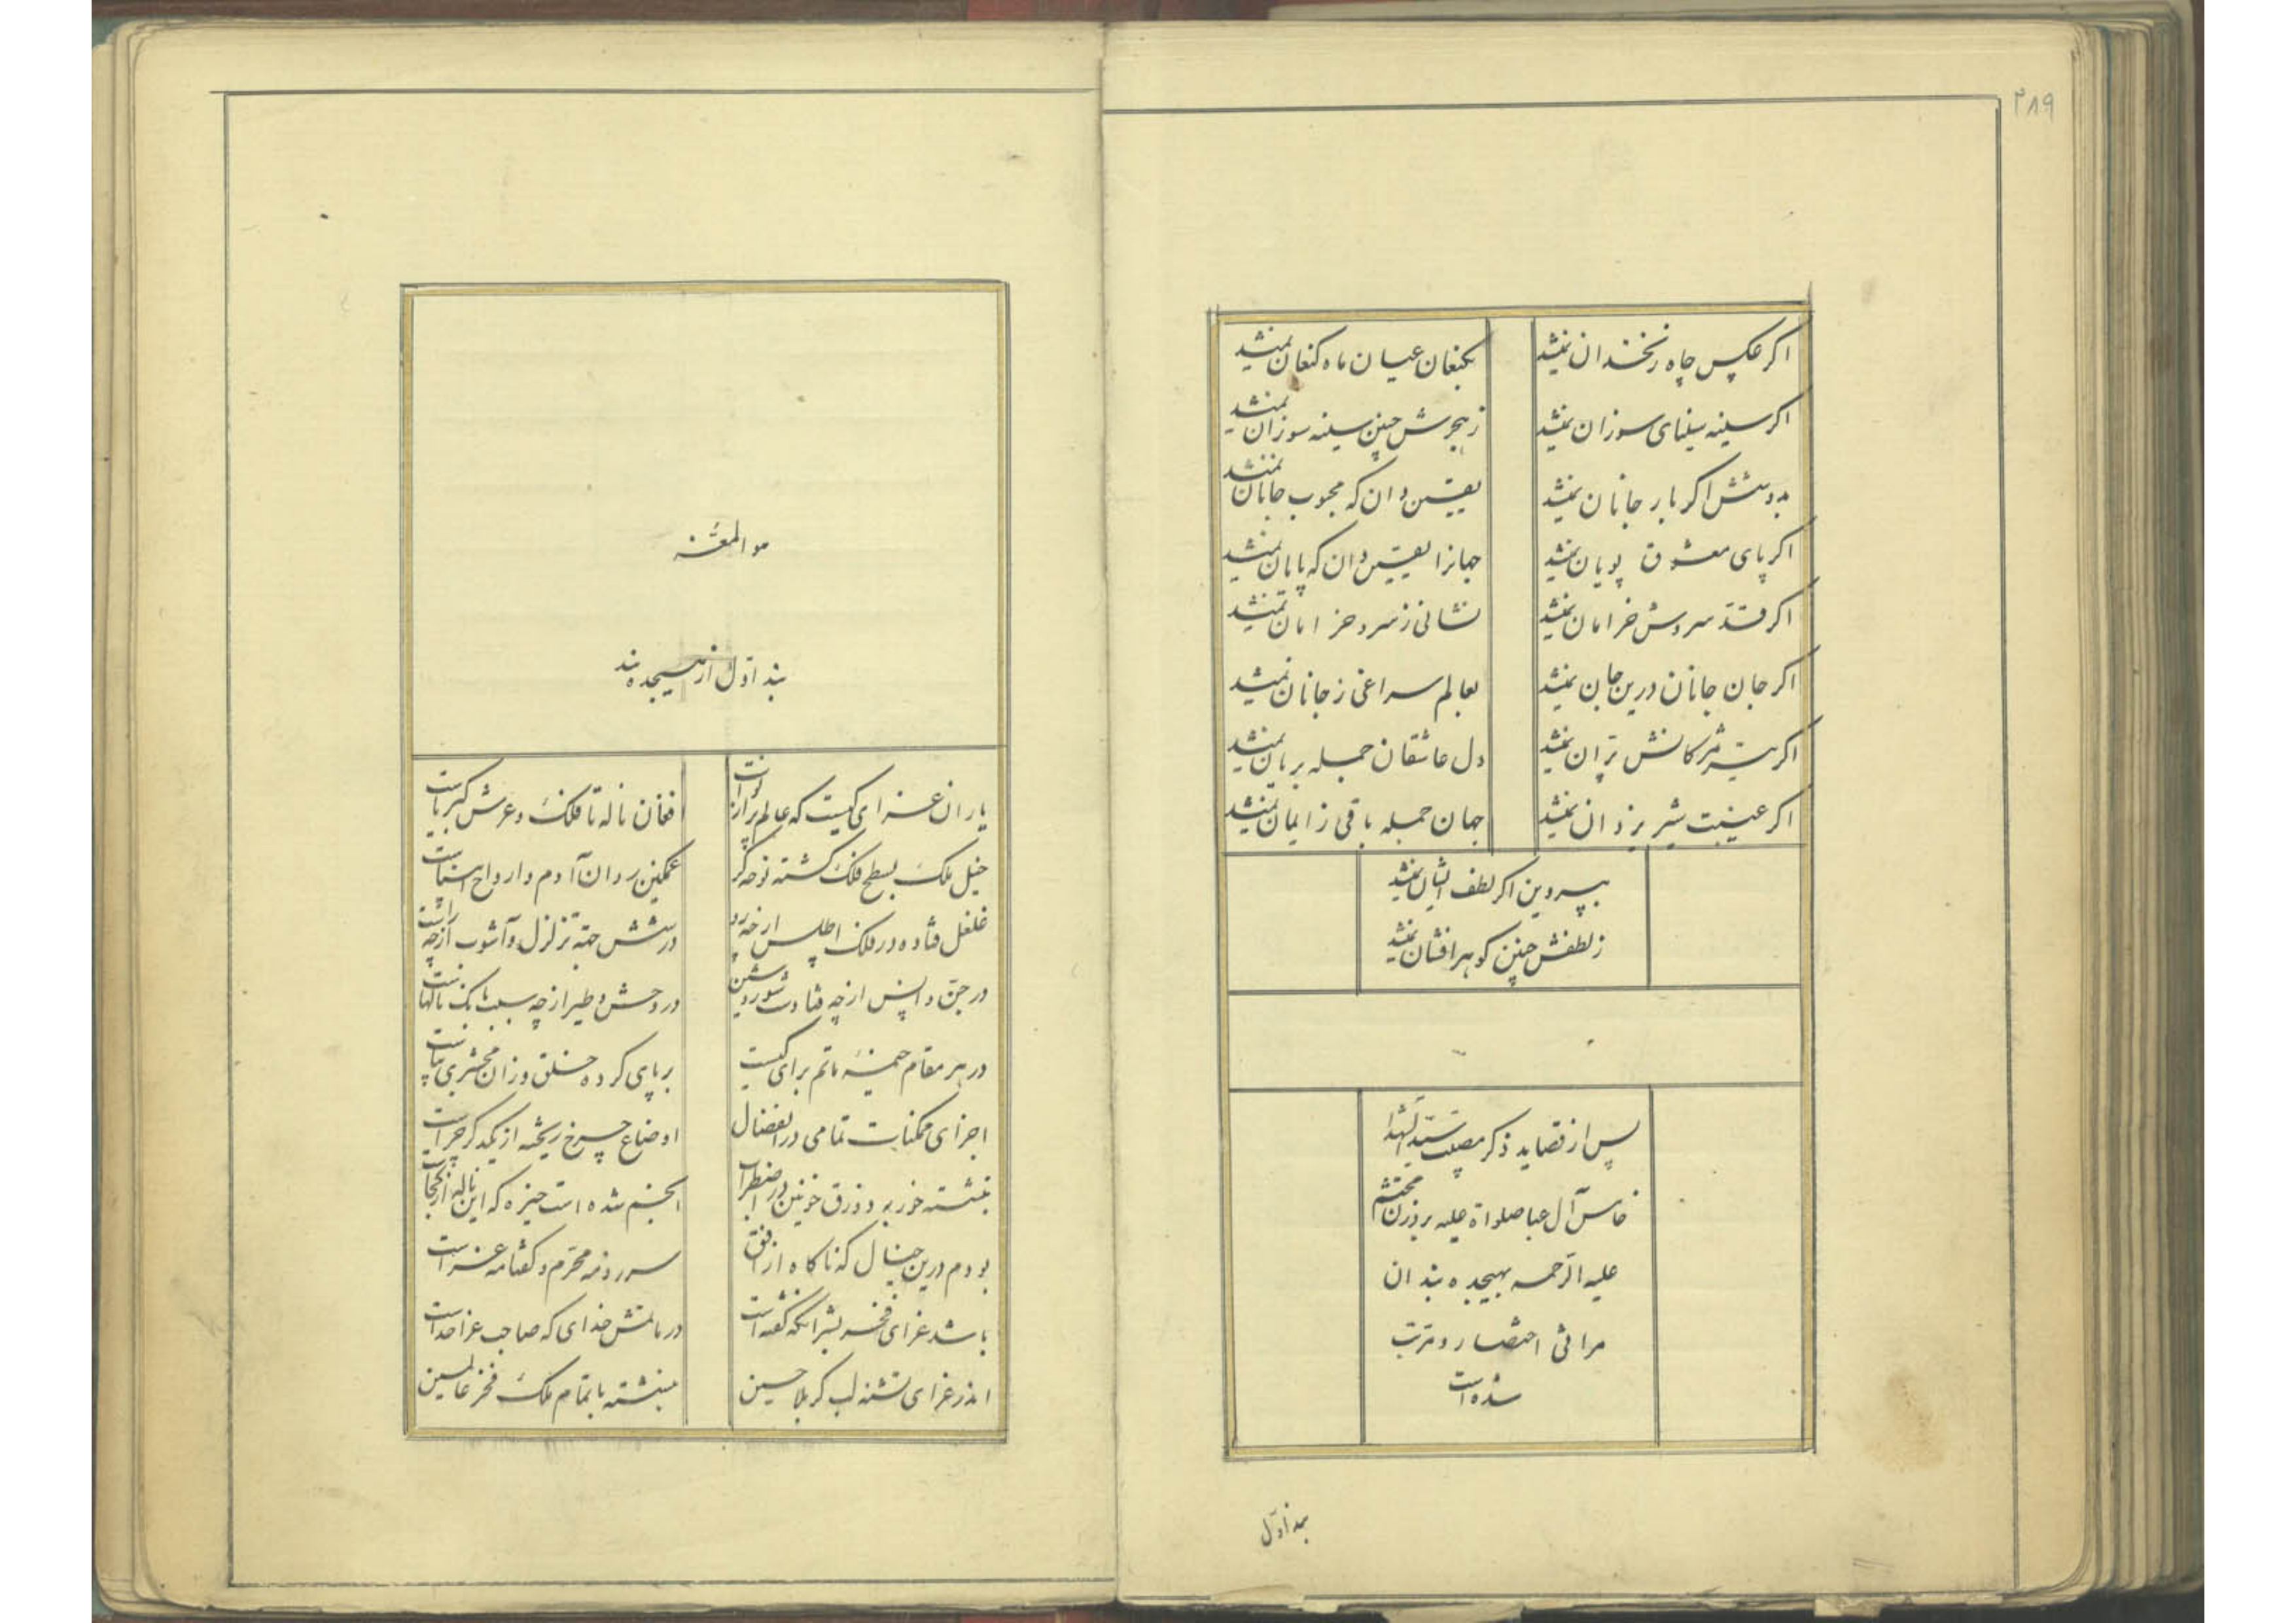 ۲۸۹
اگر عکس چاه زنخدان نمیشد
بکنعان عیان ماه کنعان نمیشد
اگر سینه سینای سوزان نمیشد
ز هجرش چنین سینه سوزان نمیشد
بدوشش اگر بار جانان نمیشد
یقین دان که محبوب جانان نمیشد
اگر پای معشوق پویان نمیشد
جهانرا یقین دان که پایان نمیشد
اگر قد سروش خرامان نمیشد
نشانی ز سرو خرامان نمیشد
اگر جان جانان درین جان نمیشد
بعالم سراغی ز جانان نمیشد
اگر تیر مژگانش بران نمیشد
دل عاشقان جمله بریان نمیشد
اگر عینیت شیر یزدان نمیشد
جهان جمله باقی ز ایمان نمیشد
بپروین اگر لطف ایشان نمیشد
ز لطفش چنین گوهر افشان نمیشد
پس از قصاید ذکر مصیبت سید الشهدا
خامس آل عبا صلواة علیه بر وزن محتشم
علیه الرحمه بهیجده بند ان
مراثی اختصار و مرتب
شده است
بند اول
هو المعز
بند اول از هیجده بند
یاران عزای کیست که عالم پر از نواست
افغان ناله تا فلک و عرش کبریاست
خیل ملک بسطح فلک گشته نوحه گر
غمگین روان آدم و ارواح انبیاست
غلغل فتاده در فلک اطلس از چه رو
در شش جهة تزلزل و آشوب از چه راست
در جن و انس از چه فتادست شور و شین
در وحش و طیر از چه سبب بانک نالهاست
در هر مقام خیمهٔ ماتم برای کیست
بر پای کرده خلق وزان محشری بپاست
اجزای ممکنات تمامی در انفصال
اوضاع چرخ ریخته از یکدگر چراست
بنشسته خور به زورق خونین در اضطراب
انجم شده است خیره که این ناله از کجاست
بودم درین خیال که ناگاه از افق
سر زد مه محرم و گفتا مه عزاست
باشد عزای فخر بشر آنکه گفته است
در ماتمش خدای که صاحب عزا خداست
اندر عزای تشنه لب کربلا حسین
بنشسته با تمام ملک فخر عالمین